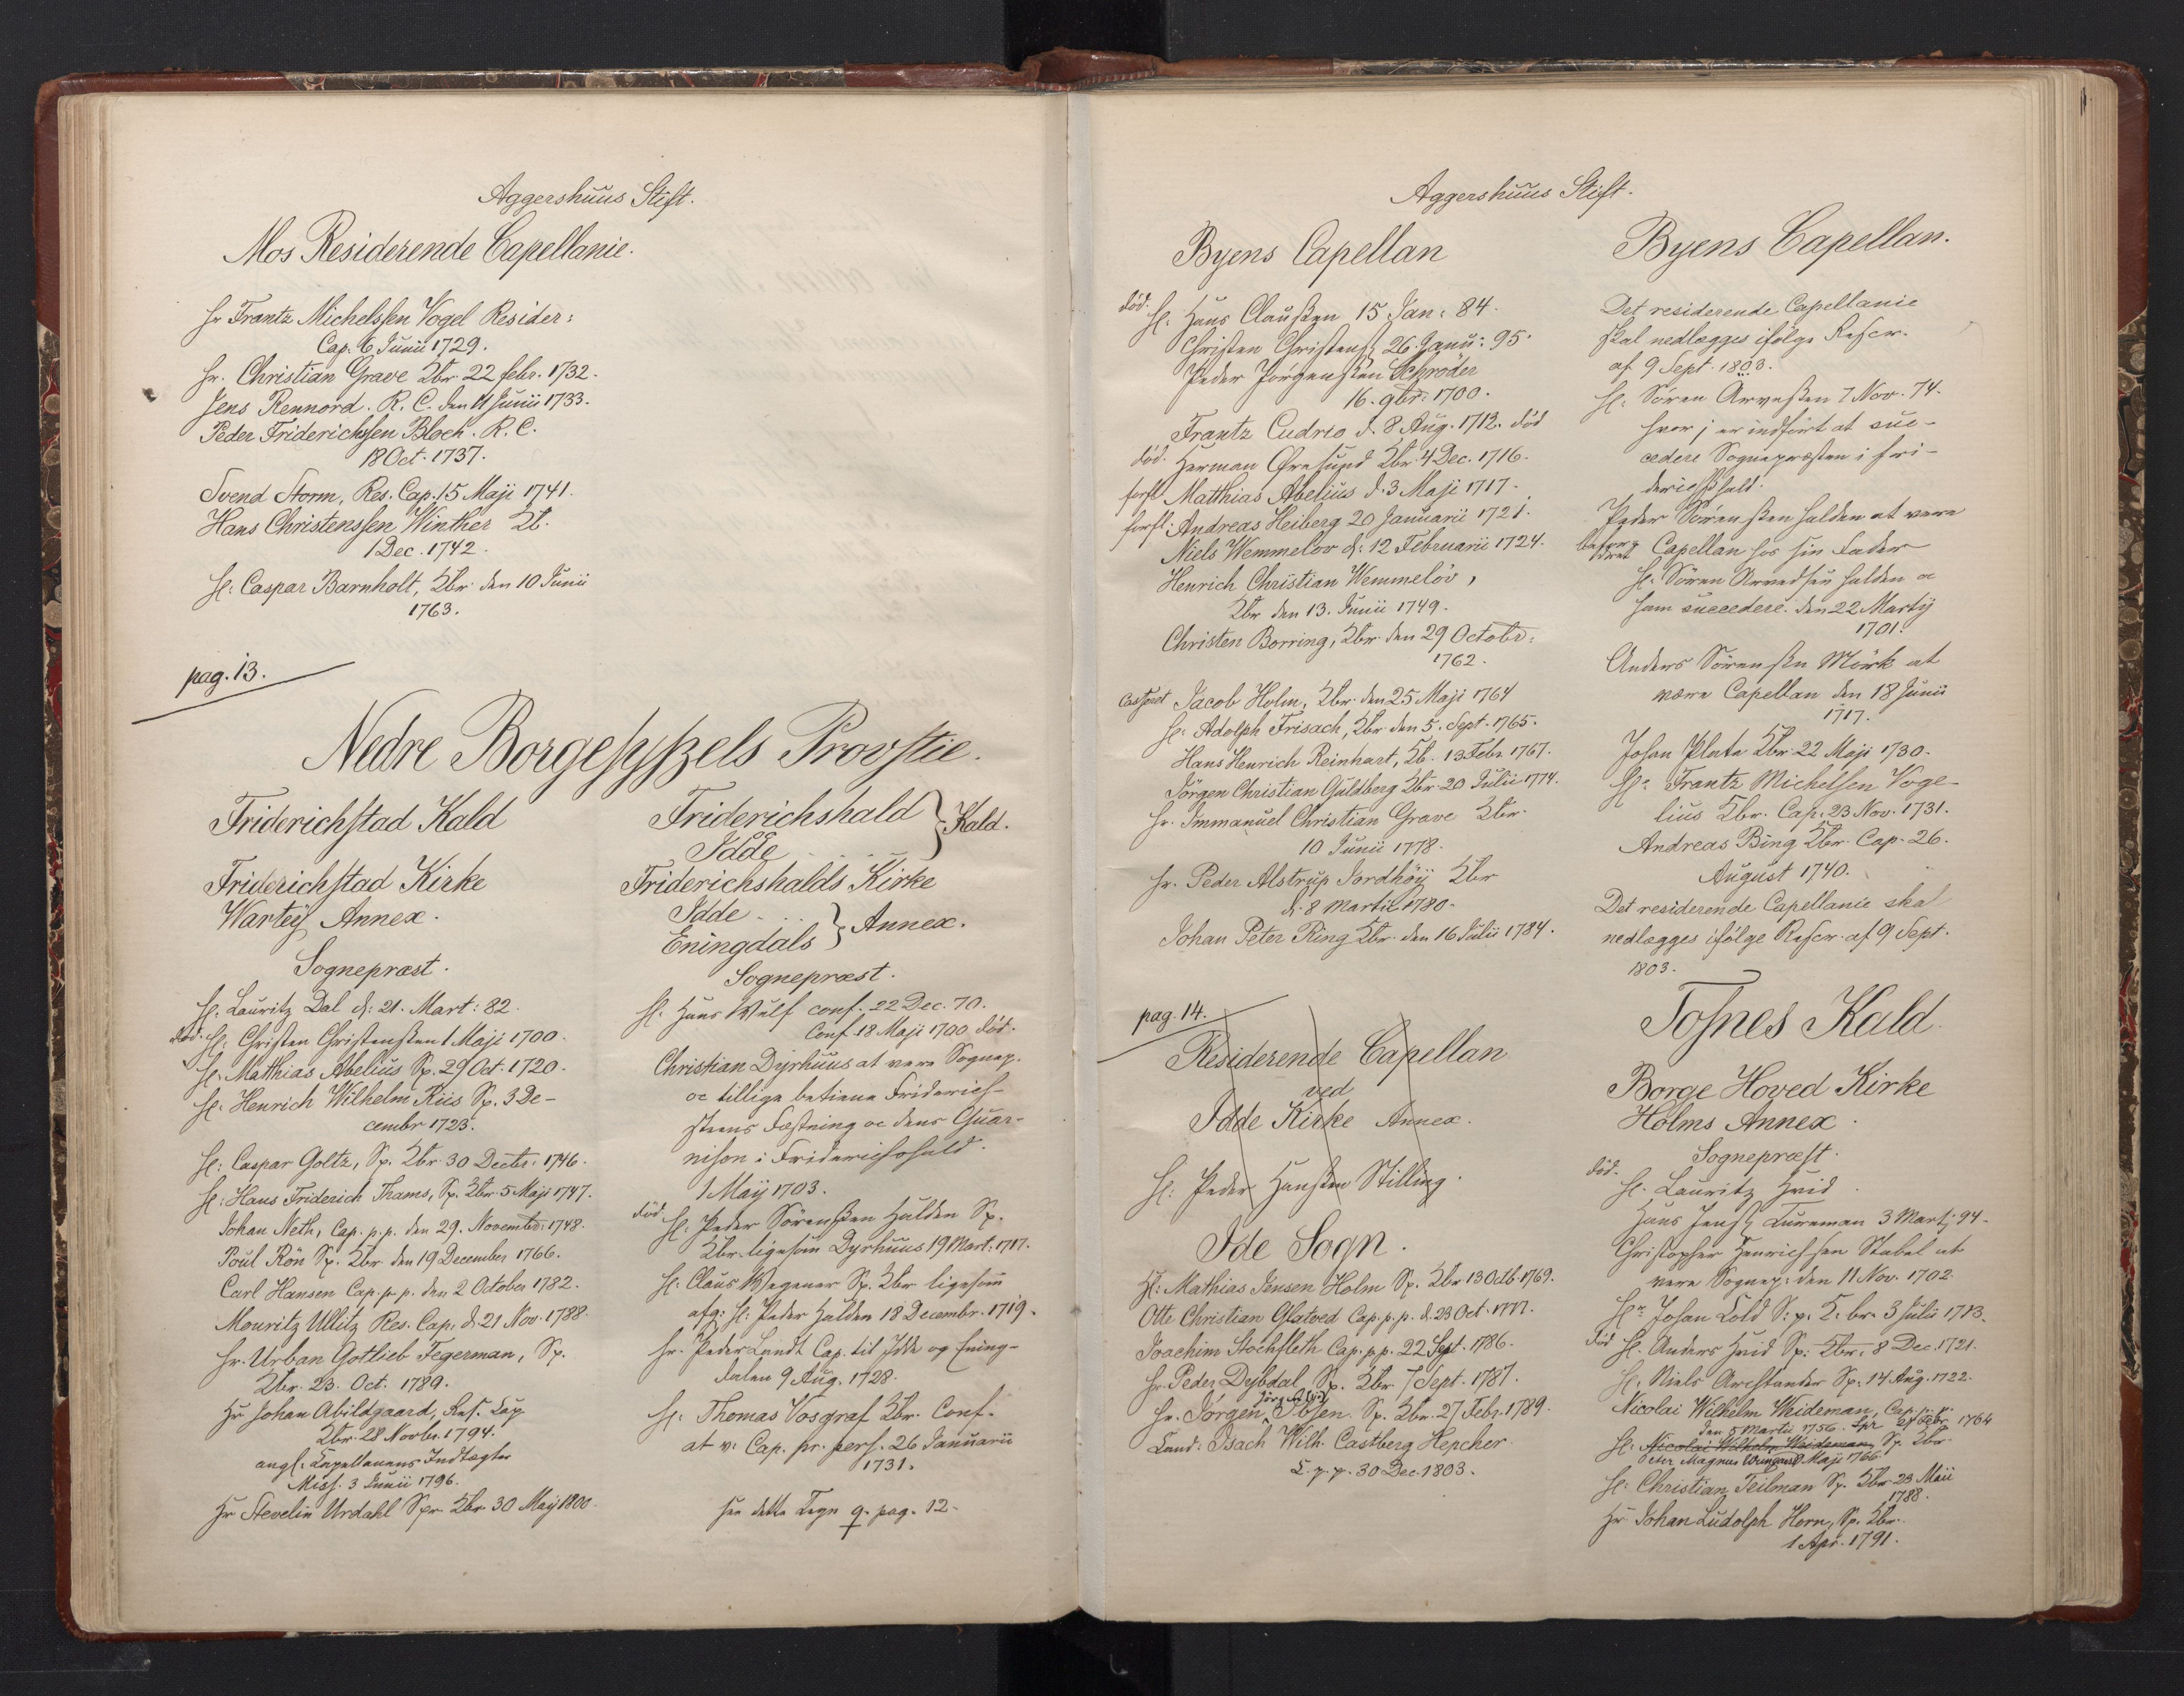 Aggershuus Stift.
Mos Residerende Capellanie.
Hr Frantz Michelssen Vogel Resider:
Cap. 6 Junii 1729.
Hr. Christian Grave Kbr. 22 febr. 1732.
Jens Rennord. R. C. den 11 Junii 1733.
Peder Friderichssen Bloch. R. C.
18 Oct. 1737.
Svend Storm, Res. Cap. 15 Maji 1741.
Hans Christenssen Winther Kb.
1 Dec. 1742.
H: Caspar Barnholt, Kbr. den 10 Junii
1763.
pag. 13.
Nedre Borgesysszels Provstie.
Friderichstad Kald
Friderichstad Kirke
Wartey Annex.
Sognepræst.
H: Lauritz Dal d: 21. Mart: 82.
død. H: Christen Christensen 1 Maji 1700.
H: Matthias Abelius Sp. 29 Oct. 1720.
H: Henrich Wilhelm Riis Sp. 3 De-
cembr 1723.
H: Caspar Goltz, Sp. Kbr 30 Decbr: 1746.
H: Hans Friderich Thams, Sp. Kbr 5 Maji 1747.
Johan Neth, Cap. p. p. den 29. Novembr: 1748.
Poul Rön Sp. Kbr den 19 December 1766.
Carl Hansen Cap. p. p. den 2 October 1782.
Mouritz Ullitz Res. Cap. d. 21 Nov. 1788.
Hr. Urban Gotlieb Fegerman, Sp.
Kbr. 23. Oct. 1789.
Hr Johan Abildgaard, Res. Cap
Kbr. 28 Novbr. 1794.
angl. Capellanens Indtægter
Miss. 3 Junii 1796.
Hr Stevelin Urdahl Spr. Kbr. 30 Maij 1800.
Friderichshald
Idde } Kald.
Friderichshalds Kirke
Idde
Eningdals } Annex.
Sognepræst.
H: Hans Wulf conf. 22 Dec. 70.
Conf. 18 Maji 1700, død.
Christian Dyrhuus at være Sognep.
oc tillige betiene Friderich-
steens Fæstning oc dens Guar-
nison i Friderichshald.
1 Maij 1703.
død. H: Peder Sörenssen Halden Sp.
Kbr. ligesom Dyrhuus 19 Mart: 1717.
H: Claus Wegener Sp. Kbr ligesom
afg: H: Peder Halden 18 Decembr. 1719.
Hr. Peder Lundt Cap. til Idde og Ening-
dalen 9 Aug. 1728.
H: Thomas Vosgraf Kbr. Conf.
at v: Cap. pr. pers. 26 Januarii
1731.
See dette Tegn q. pag. 12.
Aggershuus Stift.
Byens Capellan
død. H: Hans Claussen 15 Jan: 84.
Christen Christens: 26 Janu: 95.
Peder Jörgenssen Schröder
16. 9br: 1700.
Frantz Cudrio d. 8 Aug. 1712. død
død. Herman Öresund Kbr. 4 Dec. 1716.
forfl. Matthias Abelius d. 3 Maji 1717.
forfl. Andreas Heiberg 20 Januarii 1721.
Niels Wemmelov d: 12 Februarii 1724.
Henrich Christian Wemmelöv,
Kbr den 13. Junii 1749.
Christen Borring, Kbr. den 29 Octobr:
1762.
casseret Jacob Holm, Kbr. den 25 Maji 1764
H: Adolph Frisach, Kbr den 5. Sept. 1765.
Hans Henrich Reinhart, Kb. 13 Febr 1767.
Jörgen Christian Guldberg Kbr 20 Julii 1774.
Hr. Immanuel Christian Grave Kbr.
10 Junii 1778.
Hr. Peder Alstrup Jordhöy Kbr
d. 8 Martii 1780.
Johan Peter Ring Kbr. den 16 Julii 1784.
pag. 14.
Residerende Capellan
ved
Idde Kirke Annex.
H: Peder Hanssen Stilling.
Ide Sogn.
H: Mathias Jensen Holm Sp. Kbr 13 Octb. 1769.
Otte Christian Glatved Cap. p. p. d. 23 Oct. 1777.
Joachim Stochfleth Cap. p. p. 22 Sept. 1786.
Hr. Peder Dybdal Sp. Kbr. 7 Sept. 1787.
Hr. Jörgen Ibsen. Sp. Kbr. 27 Febr. 1789.
Cand: Isach Wilh. Castberg Hepcher.
C. p. p. 30 Dec. 1803.
Byens Capellan.
Det residerende Capellanie
skal nedlægges ifölge Rescr.
af 9 Sept. 1803.
H: Sören Arvessen 7 Nov. 74.
hvor j er indfört at suc-
cedere Sognepræsten i Fri-
derichshald.
Peder Sörenssen Halden at være
Capellan hos sin Fader
H: Sören Arvedsen Halden oc
ham succedere. den 22 Martij
1701.
Anders Sörenssen Mörk at
være Capellan den 18 Junii
1717.
Johan Plate Kbr. 22 Maji 1730.
Hr. Frantz Michelsen Voge-
lius Kbr. Cap. 23 Nov. 1731.
Andreas Bing Kbr. Cap. 26.
August 1740.
Det residerende Capellanie skal
nedlægges ifölge Rescr. af 9 Sept.
1803.
Tosnes Kald.
Borge Hoved Kirke
Holms Annex.
Sognepræst.
død.
H. Lauritz Hvid
Hans Jens: Lureman 3 Martj 94.
Christopher Henrichsen Stabel at
være Sognep: den 11 Nov. 1702.
Hr. Johan Cold S: p. K. br. 3 Julii 1713.
død H. Anders Hvid Sp: Kbr. 8 Dec. 1721.
H: Niels Arctander Sp: 14 Aug. 1722.
Nicolai Wilhelm Weideman, Cap. p. p.
den 5 Martii 1756. Spr 24 Febr 1764
H: Nicolai Wilhelm Weideman Sp. Kbr
Peter Magnus Wungaard Maji 1766.
H: Christian Teilman Sp. Kbr 23 Maii
1788.
Hr Johan Ludolph Horn, Sp. Kbr.
1 Apr. 1791.